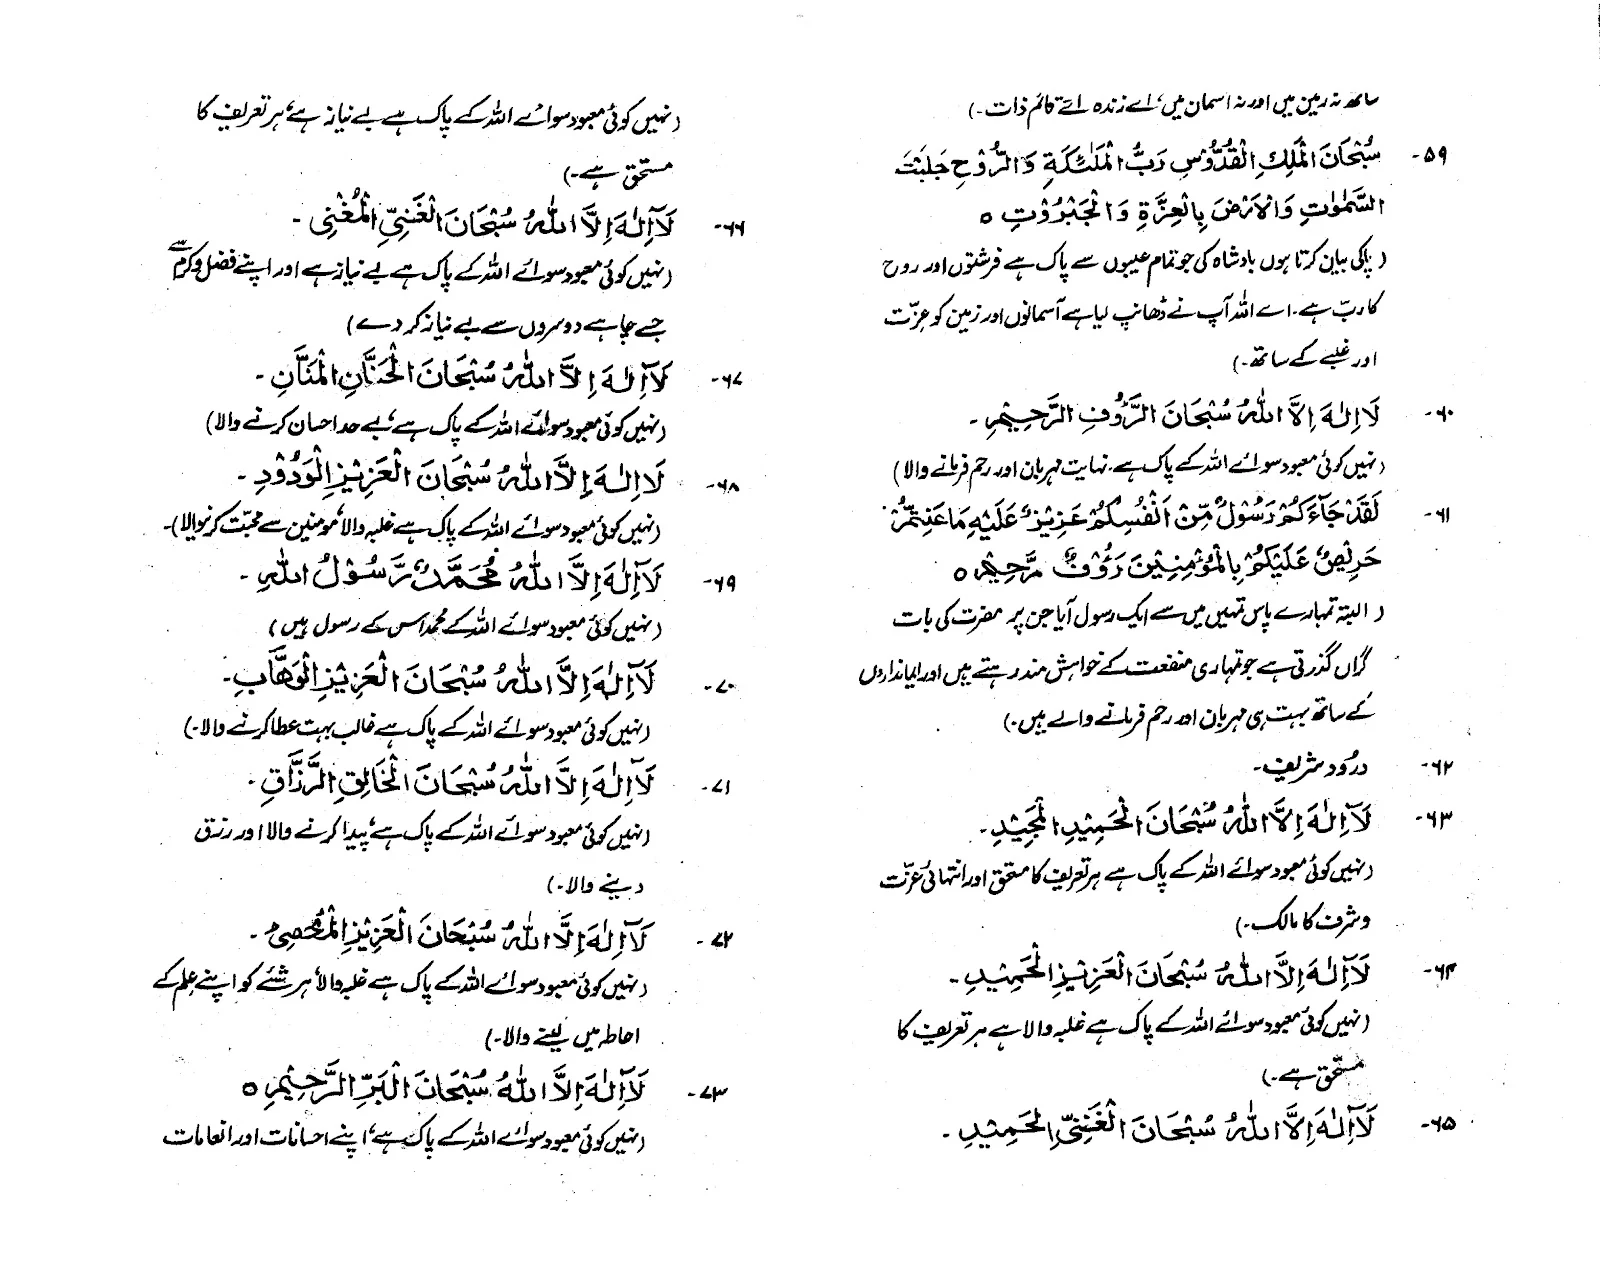 ساتھ نہ زمین میں اور نہ آسمان میں، اے زندہ اے قائم ذات۔)
۵۹۔ سُبْحَانَ الْمَلِكِ الْقُدُّوْسِ رَبُّ الْمَلٰئِكَةِ وَالرُّوْحِ جَلَّیْتَ
السَّمٰوَاتِ وَالْاَرْضَ بِالْعِزَّةِ وَالْجَبْرُوْتِ ○
(پاکی بیان کرتا ہوں بادشاہ کی جو تمام عیبوں سے پاک ہے فرشتوں اور روح
کا ربّ ہے۔ اے اللہ آپ نے ڈھانپ لیا ہے آسمانوں اور زمین کو عزّت
اور غلبے کے ساتھ۔)
۶۰۔ لَا اِلٰهَ اِلَّا اللّٰهُ سُبْحَانَ الرَّؤُفِ الرَّحِيْمِ۔
(نہیں کوئی معبود سوائے اللہ کے پاک ہے۔ نہایت مہربان اور رحم فرمانے والا)
۶۱۔ لَقَدْ جَآءَكُمْ رَسُوْلٌ مِّنْ اَنْفُسِكُمْ عَزِيْزٌ عَلَيْهِ مَا عَنِتُّمْ
حَرِيْصٌ عَلَيْكُمْ بِالْمُؤْمِنِيْنَ رَؤُفٌ رَّحِيْمٌ ○
(البتہ تمہارے پاس تمہیں میں سے ایک رسول آیا جن پر مضرت کی بات
گراں گذرتی ہے جو تمہاری منفعت کے خواہش مند رہتے ہیں اور ایمانداروں
کے ساتھ بہت ہی مہربان اور رحم فرمانے والے ہیں۔)
۶۲۔ درُود شریف۔
۶۳۔ لَآ اِلٰهَ اِلَّا اللّٰهُ سُبْحَانَ الْحَمِيْدِ الْمَجِيْدِ۔
(نہیں کوئی معبود سوائے اللہ کے پاک ہے ہر تعریف کا مستحق اور انتہائی عزّت
و شرف کا مالک۔)
۶۴۔ لَآ اِلٰهَ اِلَّا اللّٰهُ سُبْحَانَ الْعَزِيْزِ الْحَمِيْدِ۔
(نہیں کوئی معبود سوائے اللہ کے پاک ہے غلبہ والا ہے ہر تعریف کا
مستحق ہے۔)
۶۵۔ لَآ اِلٰهَ اِلَّا اللّٰهُ سُبْحَانَ الْغَنِيِّ الْحَمِيْدِ۔
(نہیں کوئی معبود سوائے اللہ کے پاک ہے بے نیاز ہے، ہر تعریف کا
مستحق ہے۔)
۶۶۔ لَآ اِلٰهَ اِلَّا اللّٰهُ سُبْحَانَ الْغَنِيِّ الْمُغْنِي۔
(نہیں کوئی معبود سوائے اللہ کے پاک ہے بے نیاز ہے اور اپنے فضل و کرم سے
جسے چاہے دوسروں سے بے نیاز کر دے)
۶۷۔ لَآ اِلٰهَ اِلَّا اللّٰهُ سُبْحَانَ الْحَنَّانِ الْمَنَّانِ۔
(نہیں کوئی معبود سوائے اللہ کے پاک ہے، بے حد احسان کرنے والا)
۶۸۔ لَا اِلٰهَ اِلَّا اللّٰهُ سُبْحَانَ الْعَزِيْزِ الْوَدُوْدِ۔
(نہیں کوئی معبود سوائے اللہ کے پاک ہے غلبہ والا، مومنین سے محبّت کرنیوالا)۔
۶۹۔ لَآ اِلٰهَ اِلَّا اللّٰهُ مُحَمَّدٌ رَّسُوْلُ اللّٰهِ۔
(نہیں کوئی معبود سوائے اللہ کے محمد اس کے رسول ہیں)
۷۰۔ لَآ اِلٰهَ اِلَّا اللّٰهُ سُبْحَانَ الْعَزِيْزِ الْوَهَّابِ۔
(نہیں کوئی معبود سوائے اللہ کے پاک ہے غالب بہت عطا کرنے والا۔)
۷۱۔ لَآ اِلٰهَ اِلَّا اللّٰهُ سُبْحَانَ الْخَالِقِ الرَّزَّاقِ۔
(نہیں کوئی معبود سوائے اللہ کے پاک ہے، پیدا کرنے والا اور رزق
دینے والا۔)
۷۲۔ لَآ اِلٰهَ اِلَّا اللّٰهُ سُبْحَانَ الْعَزِيْزِ الْمُحْصِيْ۔
(نہیں کوئی معبود سوائے اللہ کے پاک ہے غلبہ والا، ہر شئے کو اپنے علم کے
احاطہ میں لینے والا۔)
۷۳۔ لَآ اِلٰهَ اِلَّا اللّٰهُ سُبْحَانَ الْبَرِّ الرَّحِيْمِ ○
(نہیں کوئی معبود سوائے اللہ کے پاک ہے، اپنے احسانات اور انعامات